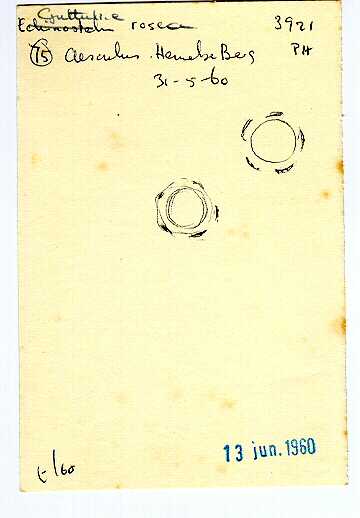 Guttulina
Echinostelium rosea 3921
15 Aesculus. Hemelse Berg PH
31-5-60
13 jun. 1960
6/60